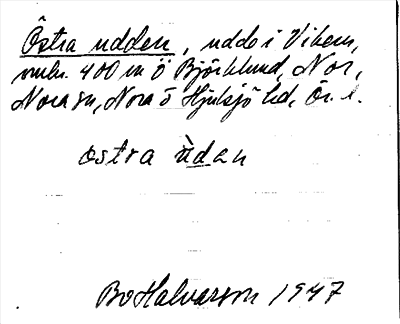 Östra udden, udde i Vikern,
omkr. 400 m Ö Björklund, Nor,
Nora sn, Nora o Hjulsjö hd, Ör. l.
ostra ùdan
Bo Halvarson 1947